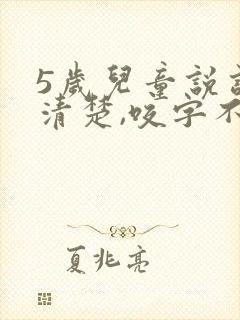 5歲兒童說
清楚,咬字不
夏兆亮